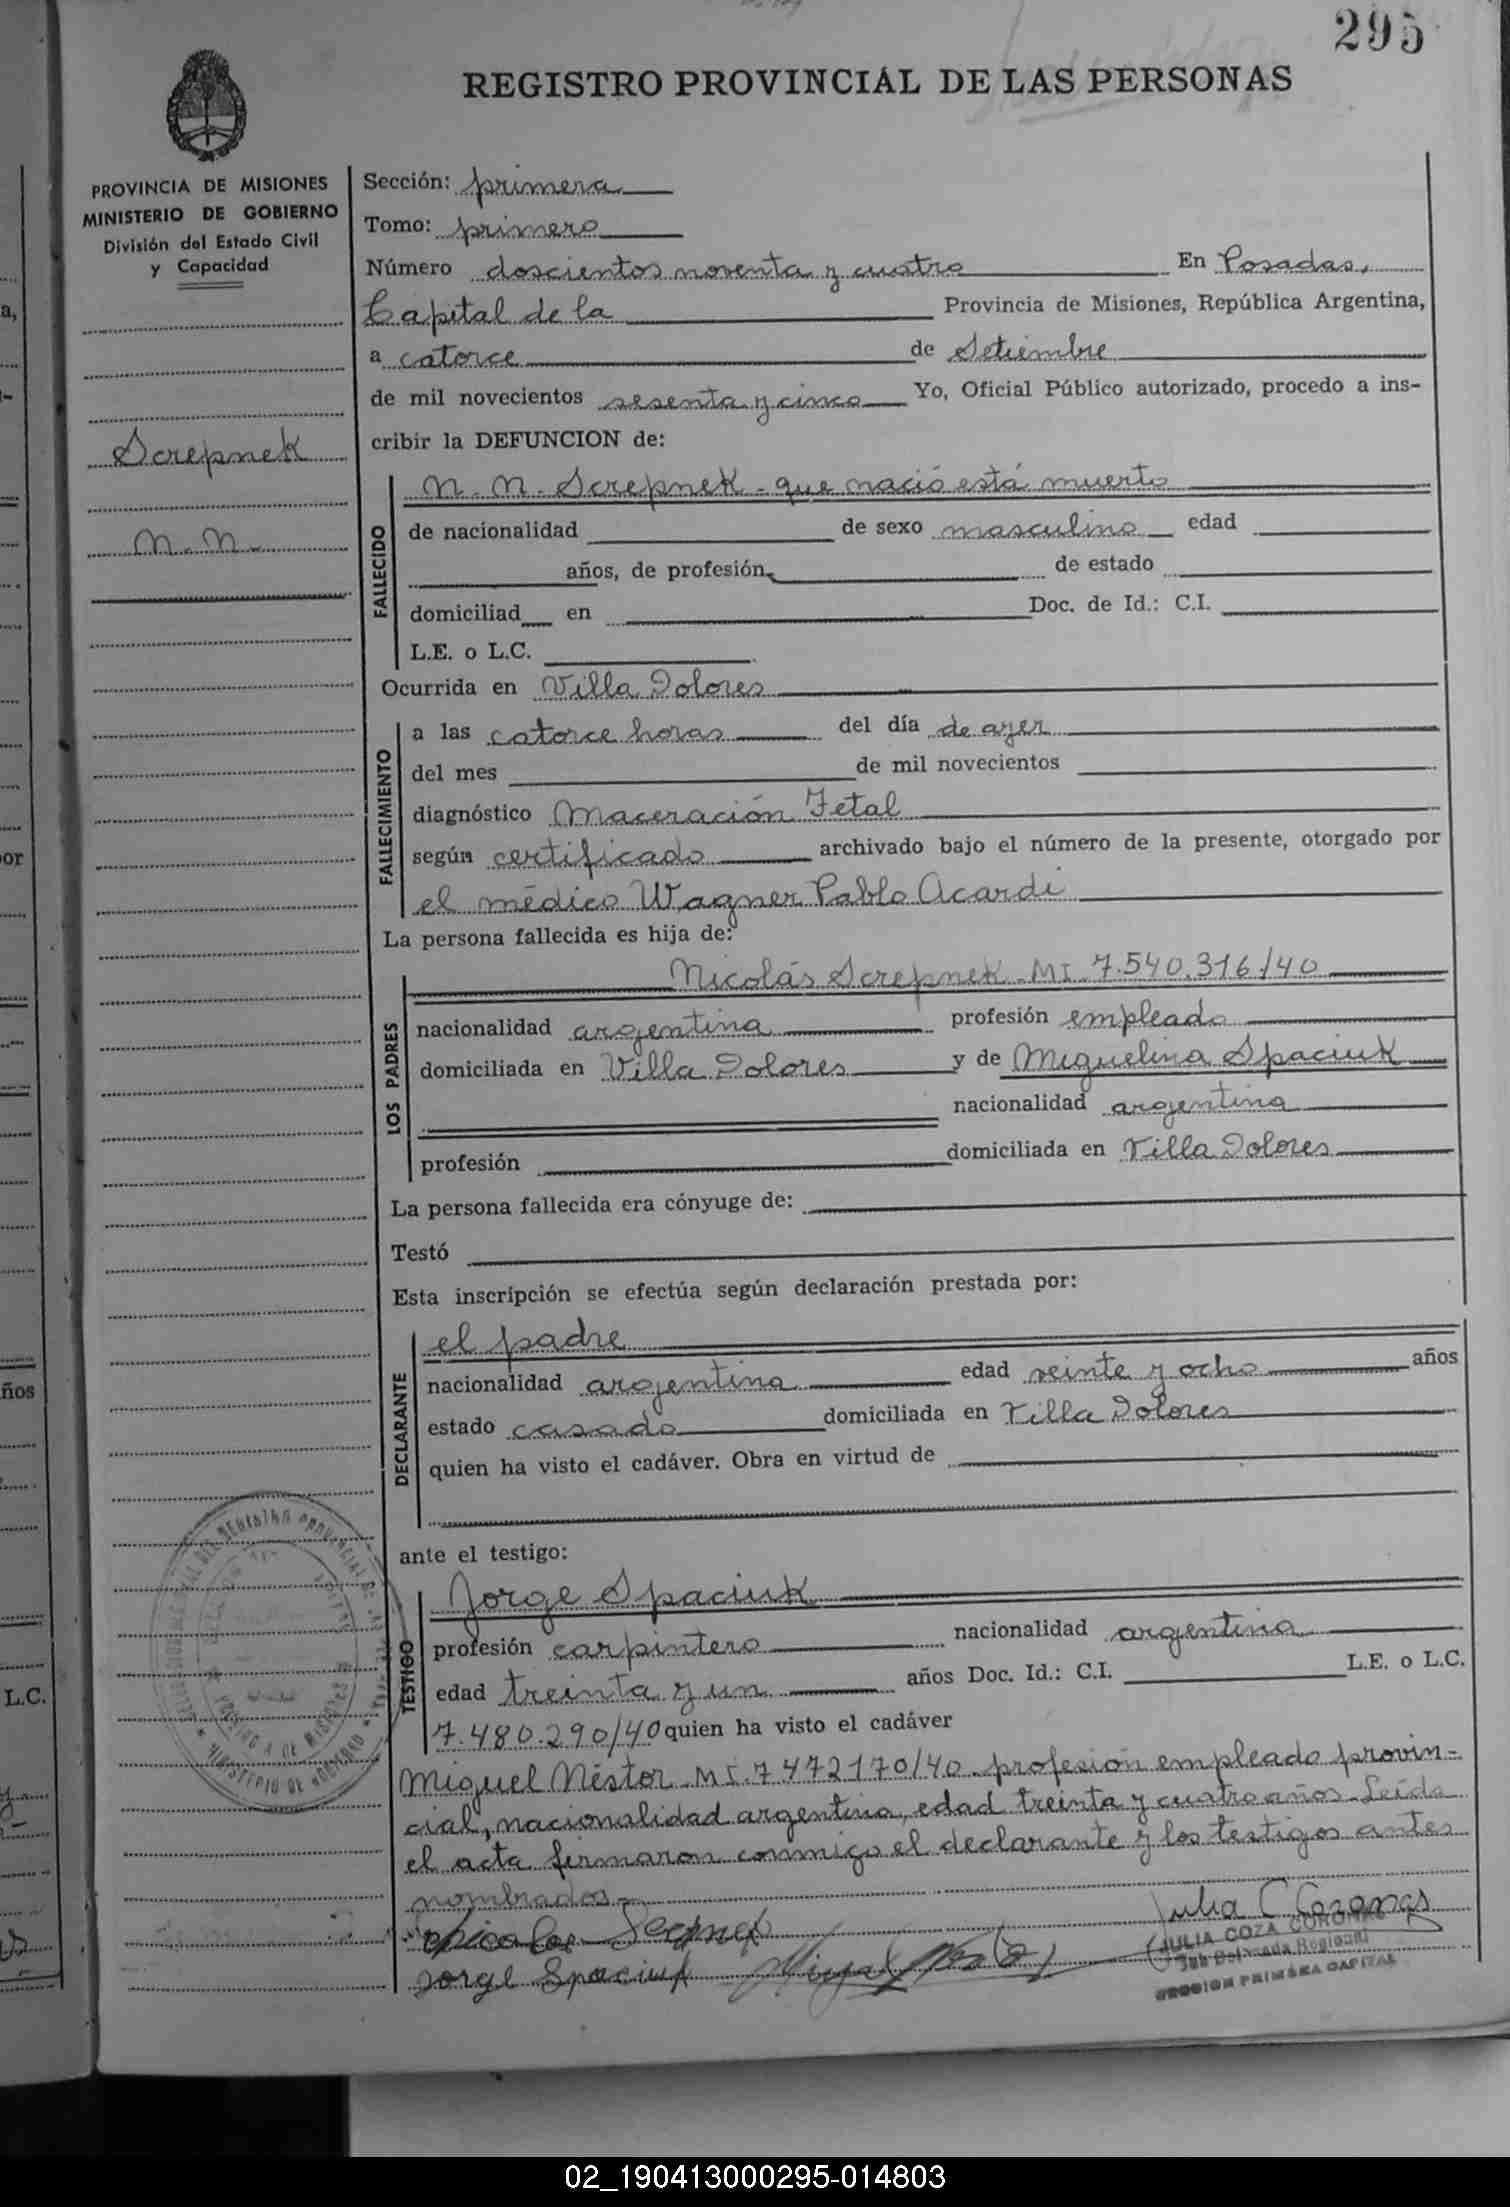 295
REGISTRO PROVINCIAL DE LAS PERSONAS
PROVINCIA DE MISIONES
MINISTERIO DE GOBIERNO
División del Estado Civil
y Capacidad
Screpnek
N. N.
Sección: primera
Tomo: primero
Número doscientos noventa y cuatro En Posadas,
Capital de la Provincia de Misiones, República Argentina,
a catorce de Setiembre
de mil novecientos sesenta y cinco Yo, Oficial Público autorizado, procedo a ins-
cribir la DEFUNCION de:
FALLECIDO
N. N. Screpnek - que nació está muerto
de nacionalidad de sexo masculino edad
años, de profesión de estado
domiciliad en Doc. de Id.: C.I.
L.E. o L.C.
Ocurrida en Villa Dolores
FALLECIMIENTO
a las catorce horas del día de ayer
del mes de mil novecientos
diagnóstico Maceración Fetal
según certificado archivado bajo el número de la presente, otorgado por
el médico Wagner Pablo Acardi
La persona fallecida es hija de:
LOS PADRES
Nicolás Screpnek - MI. 7.540.316/40
nacionalidad argentina profesión empleado
domiciliada en Villa Dolores y de Miguelina Spaciuk
nacionalidad argentina
profesión domiciliada en Villa Dolores
La persona fallecida era cónyuge de:
Testó
Esta inscripción se efectúa según declaración prestada por:
DECLARANTE
el padre
nacionalidad argentina edad veinte y ocho años
estado casado domiciliada en Villa Dolores
quien ha visto el cadáver. Obra en virtud de
ante el testigo:
TESTIGO
Jorge Spaciuk
profesión carpintero nacionalidad argentina
edad treinta y un años Doc. Id.: C.I. L.E. o L.C.
7.480.290/40 quien ha visto el cadáver
Miguel Néstor - MI. 7472170/40 - profesión empleado provin-
cial, nacionalidad argentina, edad treinta y cuatro años - Leída
el acta firmaron conmigo el declarante y los testigos antes
nombrados.-
Julia C Coronas
Jorge Spaciuk
JULIA COZA CORONAS
Sub Delegada Regional
SECCION PRIMERA CAPITAL
MINISTERIO DE GOBIERNO
02_190413000295-014803